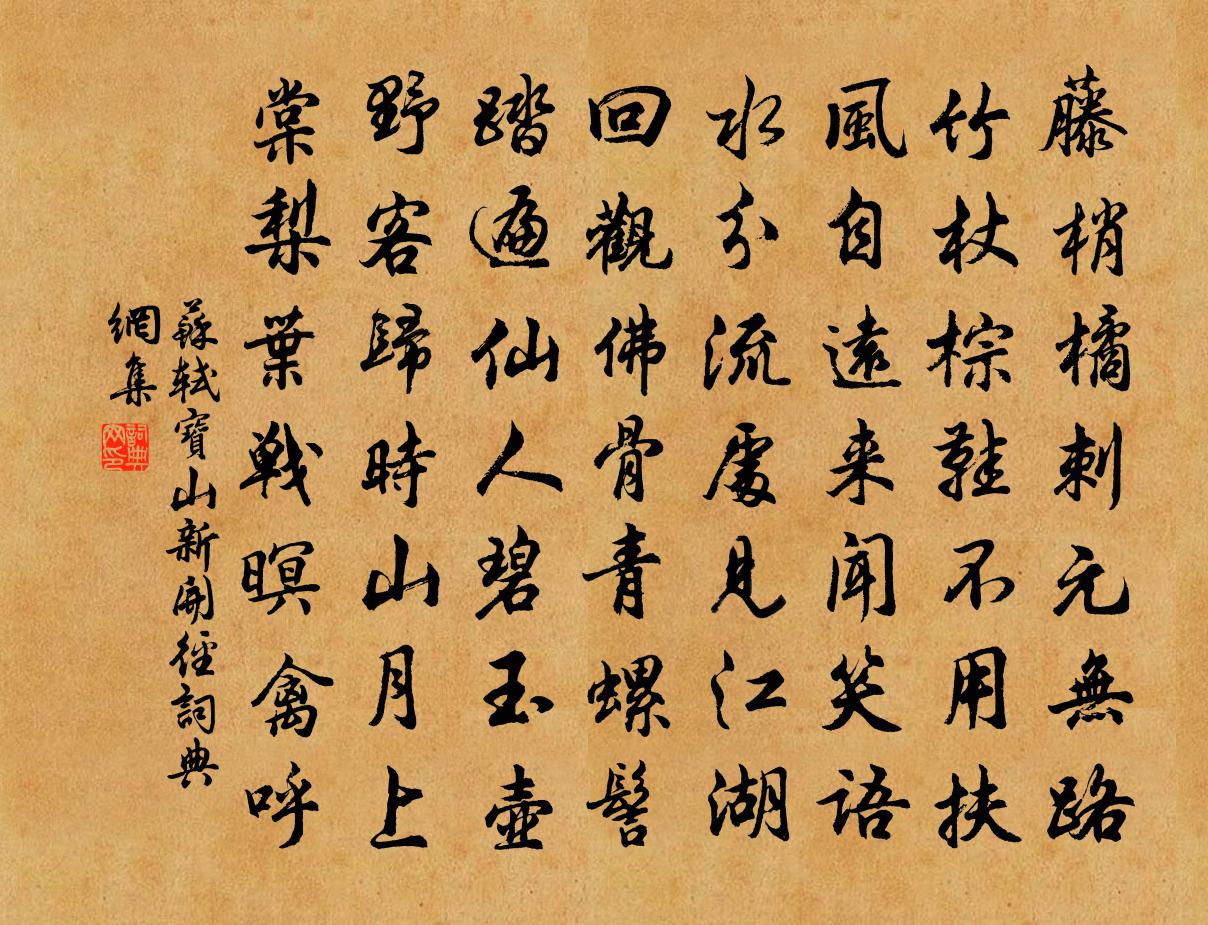 藤梢橘刺元無路
竹杖棕鞋不用扶
風自遠来聞笑語
水分流處見江湖
回觀佛骨青螺髻
踏遍仙人碧玉壺
野客歸時山月上
棠梨葉戰暝禽呼
蘇軾寶山新開徑詞典
網集
詞典
网印